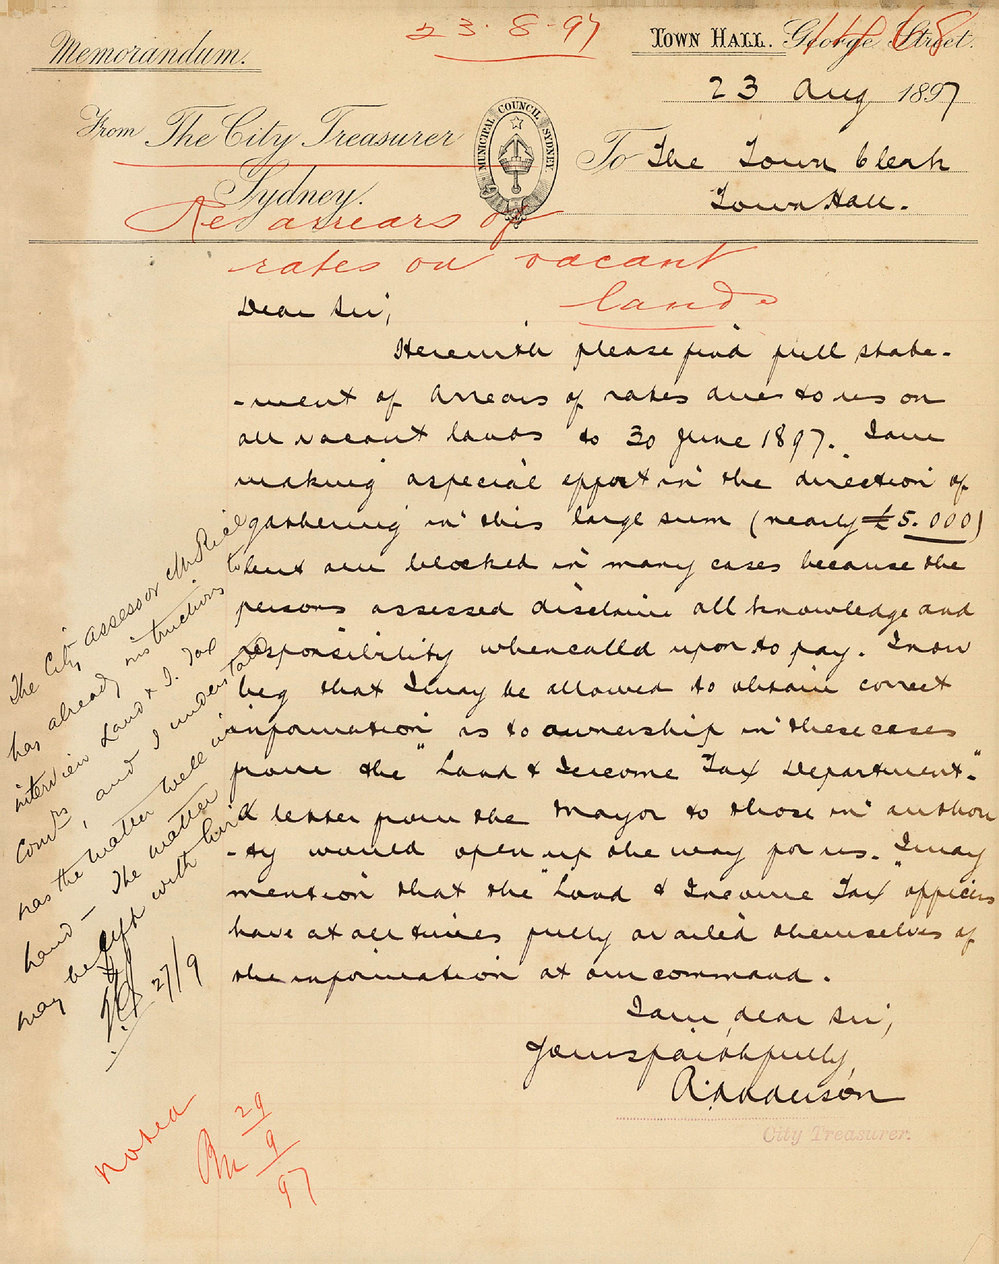 23.8.97
Memorandum.
Town Hall. George Street.
23 Aug 1897
From The City Treasurer
Sydney.
MUNICIPAL COUNCIL SYDNEY
To The Town Clerk
Town Hall.
Re arrears of
rates on vacant
lands
Dear Sir,
Herewith please find full state-
-ment of Arrears of rates due to us on
all vacant lands to 30 June 1897. I am
making a special effort in the direction of
gathering in this large sum (nearly £5.000)
but am blocked in many cases because the
persons assessed disclaim all knowledge and
responsibility when called upon to pay. I now
beg that I may be allowed to obtain correct
information as to ownership in these cases
from the "Land & Income Tax Department."
A letter from the Mayor to those in author
-ity would open up the way for us. I may
mention that the "Land & Income Tax" officers
have at all times fully availed themselves of
the information at our command.
I am, dear Sir,
Yours faithfully,
City Treasurer.
The City Assessor Mr Rice
has already instructions to
interview Land & I. Tax
Comrs, and I understand
has the matter well in
hand — The matter
may be left with him
27/9
Noted
29
9
97